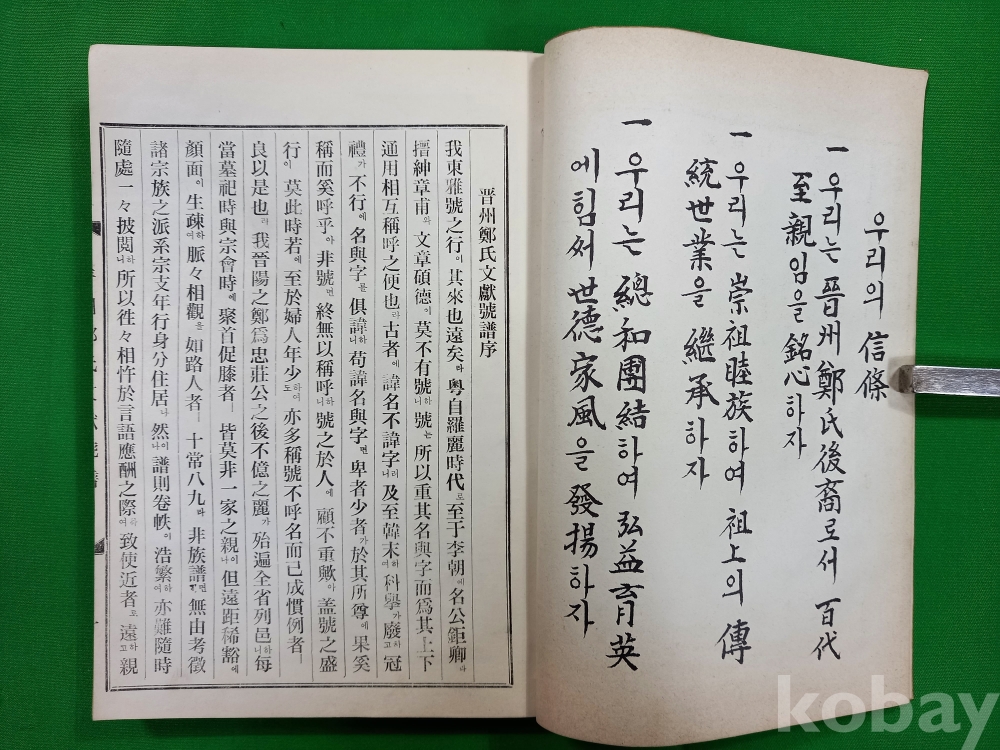 우리의 信條
一 우리는 晋州鄭氏後裔로서 百代
至親임을 銘心하자
一 우리는 崇祖睦族하여 祖上의 傳
統世業을 繼承하자
一 우리는 總和團結하여 弘益育英
에 힘써 世德家風을 發揚하자
晋州鄭氏文獻號譜序
我東雅號之行이 其來也遠矣라 粤自羅麗時代로 至于李朝에 名公鉅卿과
搢紳章甫와 文章碩德이 莫不有號하니 號는 所以重其名與字而爲其上下
通用相互稱呼之便也라 古者에 諱名不諱字러니 及至韓末하여 科擧가 廢하고 冠
禮가 不行에 名與字를 俱諱하니 苟諱名與字면 卑者少者가 於其所尊에 果奚
稱而奚呼乎아 非號면 終無以稱呼하니 號之於人에 顧不重歟아 盖號之盛
行이 莫此時若에 至於婦人年少하여도 亦多稱號不呼名而已成慣例者ㅡ
良以是也라 我晉陽之鄭爲忠莊公之後不億之麗가 殆遍全省列邑하니 每
當墓祀時與宗會時에 聚首促膝者ㅡ 皆莫非一家之親이나 但遠距稀豁에
顔面이 生疎하여 脈々相觀을 如路人者ㅡ 十常八九라 非族譜면 無由考徵
諸宗族之派系宗支年行身分住居나 然이나 譜則卷帙이 浩繁하여 亦難隨時
隨處一々披閱하니 所以徃々相忤於言語應酬之際하여 致使近者로 遠하고 親
kobay